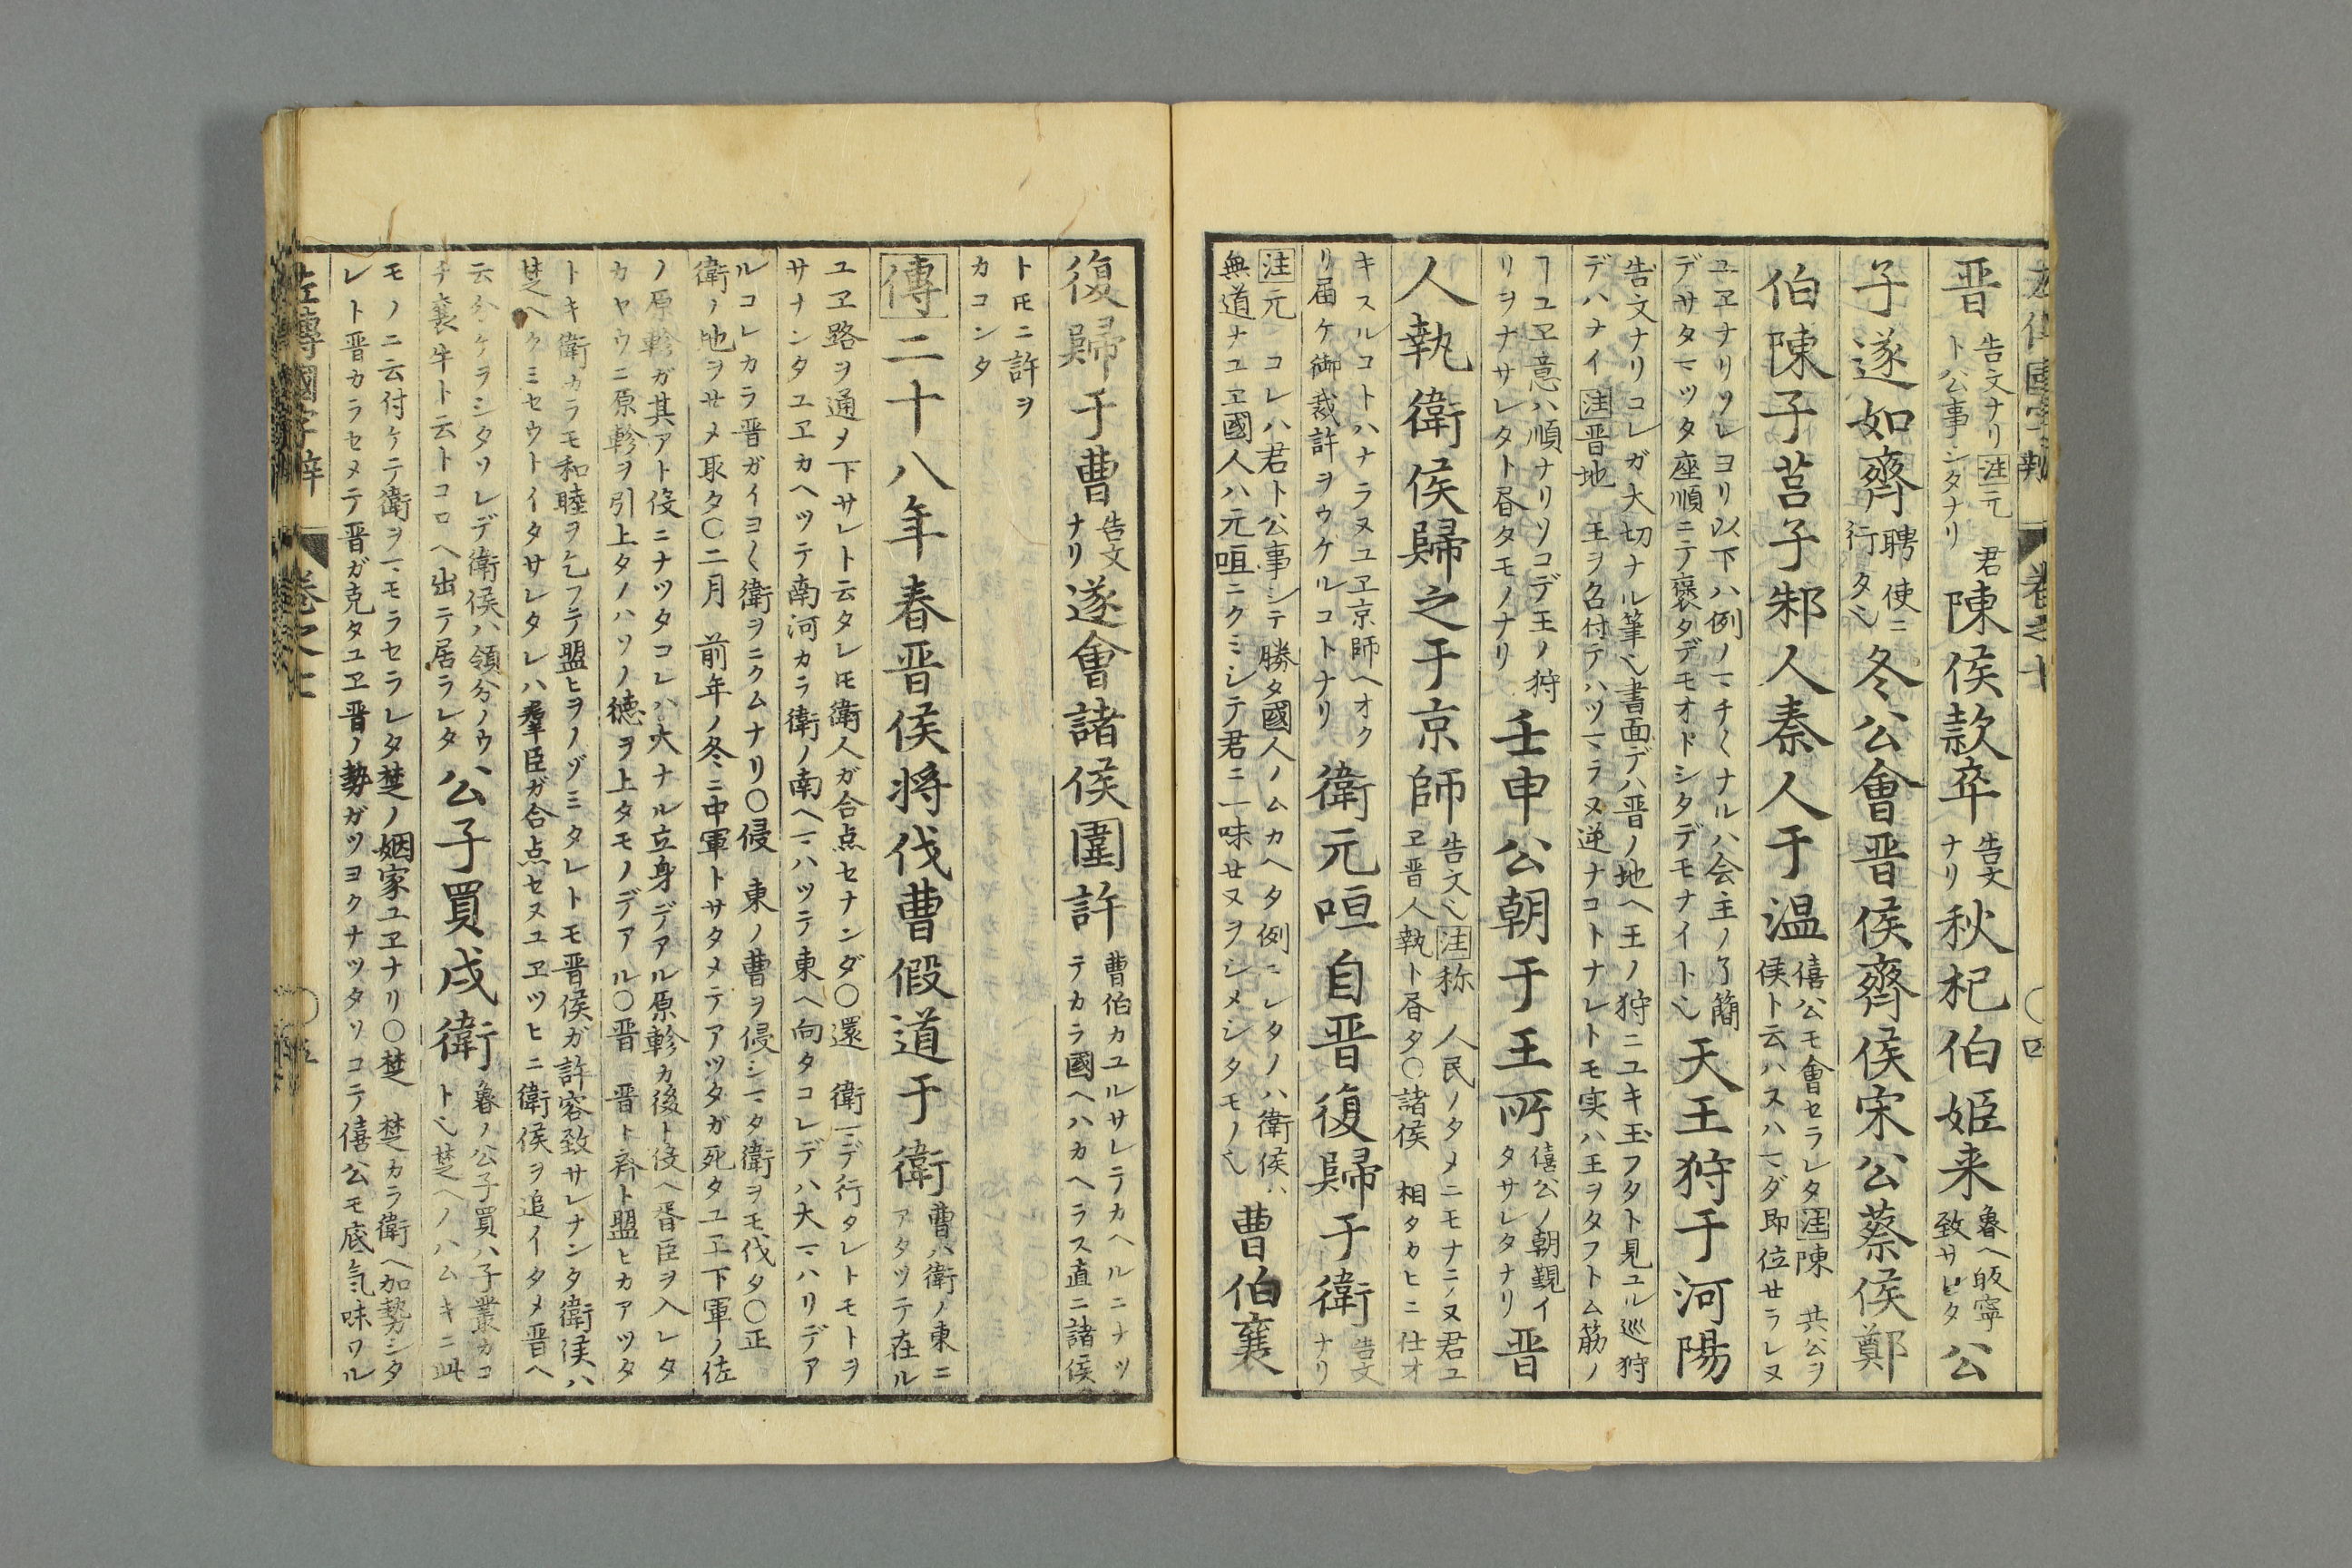 左傳國字辯 卷之七 〇四
晋 告文ナリ 注元 君
ト公事シタナリ
陳侯款卒 告文
ナリ
秋杞伯姫来 魯ヘ皈寧
致サレタ
公
子遂如齊 聘使ニ
行タ也
冬公會晋侯齊侯宋公蔡侯鄭
伯陳子莒子邾人秦人于温 僖公モ會セラレタ 注陳 共公ヲ
侯ト云ハヌハマダ即位セラレヌ
ユヱナリソレヨリ以下ハ例ノマチ〱ナルハ会主ノ了簡
デサタマツタ座順ニテ褒タデモオドシタデモナイト也
天王狩于河陽
告文ナリコレガ大切ナル筆也書面デハ晋ノ地ヘ王ノ狩ニユキ玉フタト見ユル巡狩
デハナイ 注晋地 王ヲ名付テハツマラヌ逆ナコトナレトモ実ハ王ヲタフトム筋ノ
ヿユヱ意ハ順ナリソコデ王ノ狩
リヲナサレタト昏タモノナリ
壬申公朝于王所 僖公ノ朝覲イ
タサレタナリ
晋
人執衛侯歸之于京師 告文也 注称 人民ノタメニモナラヌ君ユ
ヱ晋人執ト昏タ〇諸侯 相タカヒニ仕オ
キスルコトハナラヌユヱ京師ヘオク
リ届ケ御裁許ヲウケルコトナリ
衛元咺自晋復歸于衛 告文
ナリ
注元 コレハ君ト公事シテ勝タ國人ノムカヘタ例ニシタノハ衛侯ハ
無道ナユヱ國人ハ元咺ニクミシテ君ニ一味せヌヲシメシタモノ也
曹伯襄
復歸于曹 告文
ナリ
遂會諸侯圍許 曹伯カユルサレテカヘルニナツ
テカラ國ヘハカヘラス直ニ諸侯
トモニ許ヲ
カコンタ
傳二十八年春晋侯将伐曹假道于衛 曹ハ衛ノ東ニ
アタツテ在ル
ユヱ路ヲ通メ下サレト云タレモ衛人ガ合点セナンダ〇還 衛マデ行タレトモトヲ
サナンタユヱカヘツテ南河カラ衛ノ南ヘマハツテ東ヘ向タコレデハ大マハリデア
ルコレカラ晋ガイヨ〱衛ヲニクムナリ〇侵 東ノ曹ヲ侵シマタ衛ヲモ伐タ〇正
衛ノ地ヲせメ取タ〇二月 前年ノ冬ニ中軍トサタメテアツタガ死タユヱ下軍ノ佐
ノ原軫ガ其アト役ニナツタコレハ大ナル立身デアル原軫カ後ト役ヘ胥臣ヲ入レタ
カヤウニ原軫ヲ引上タノハソノ徳ヲ上タモノデアル〇晋 晋ト斉ト盟ヒカアツタ
トキ衛カラモ和睦ヲ乞フテ盟ヒヲノゾミタレトモ晋侯ガ許容致サレナンタ衛侯ハ
楚ヘクミセウトイタサレタレハ羣臣ガ合点セヌユヱツヒニ衛侯ヲ追イタメ晋ヘ
云分ケヲシタソレデ衛侯ハ領分ノウ
チ襄牛ト云トコロヘ出テ居ラレタ
公子買戍衛 魯ノ公子買ハ子叢カコ
ト也楚ヘノハムキニ此
モノニ云付ケテ衛ヲマモラセラレタ楚ノ姻家ユヱナリ〇楚 楚カラ衛ヘ加勢シタ
レト晋カラセメテ晋ガ克タユヱ晋ノ勢ガツヨクナツタソコテ僖公モ底気味ワル
左傳國字辯 卷之七 〇五